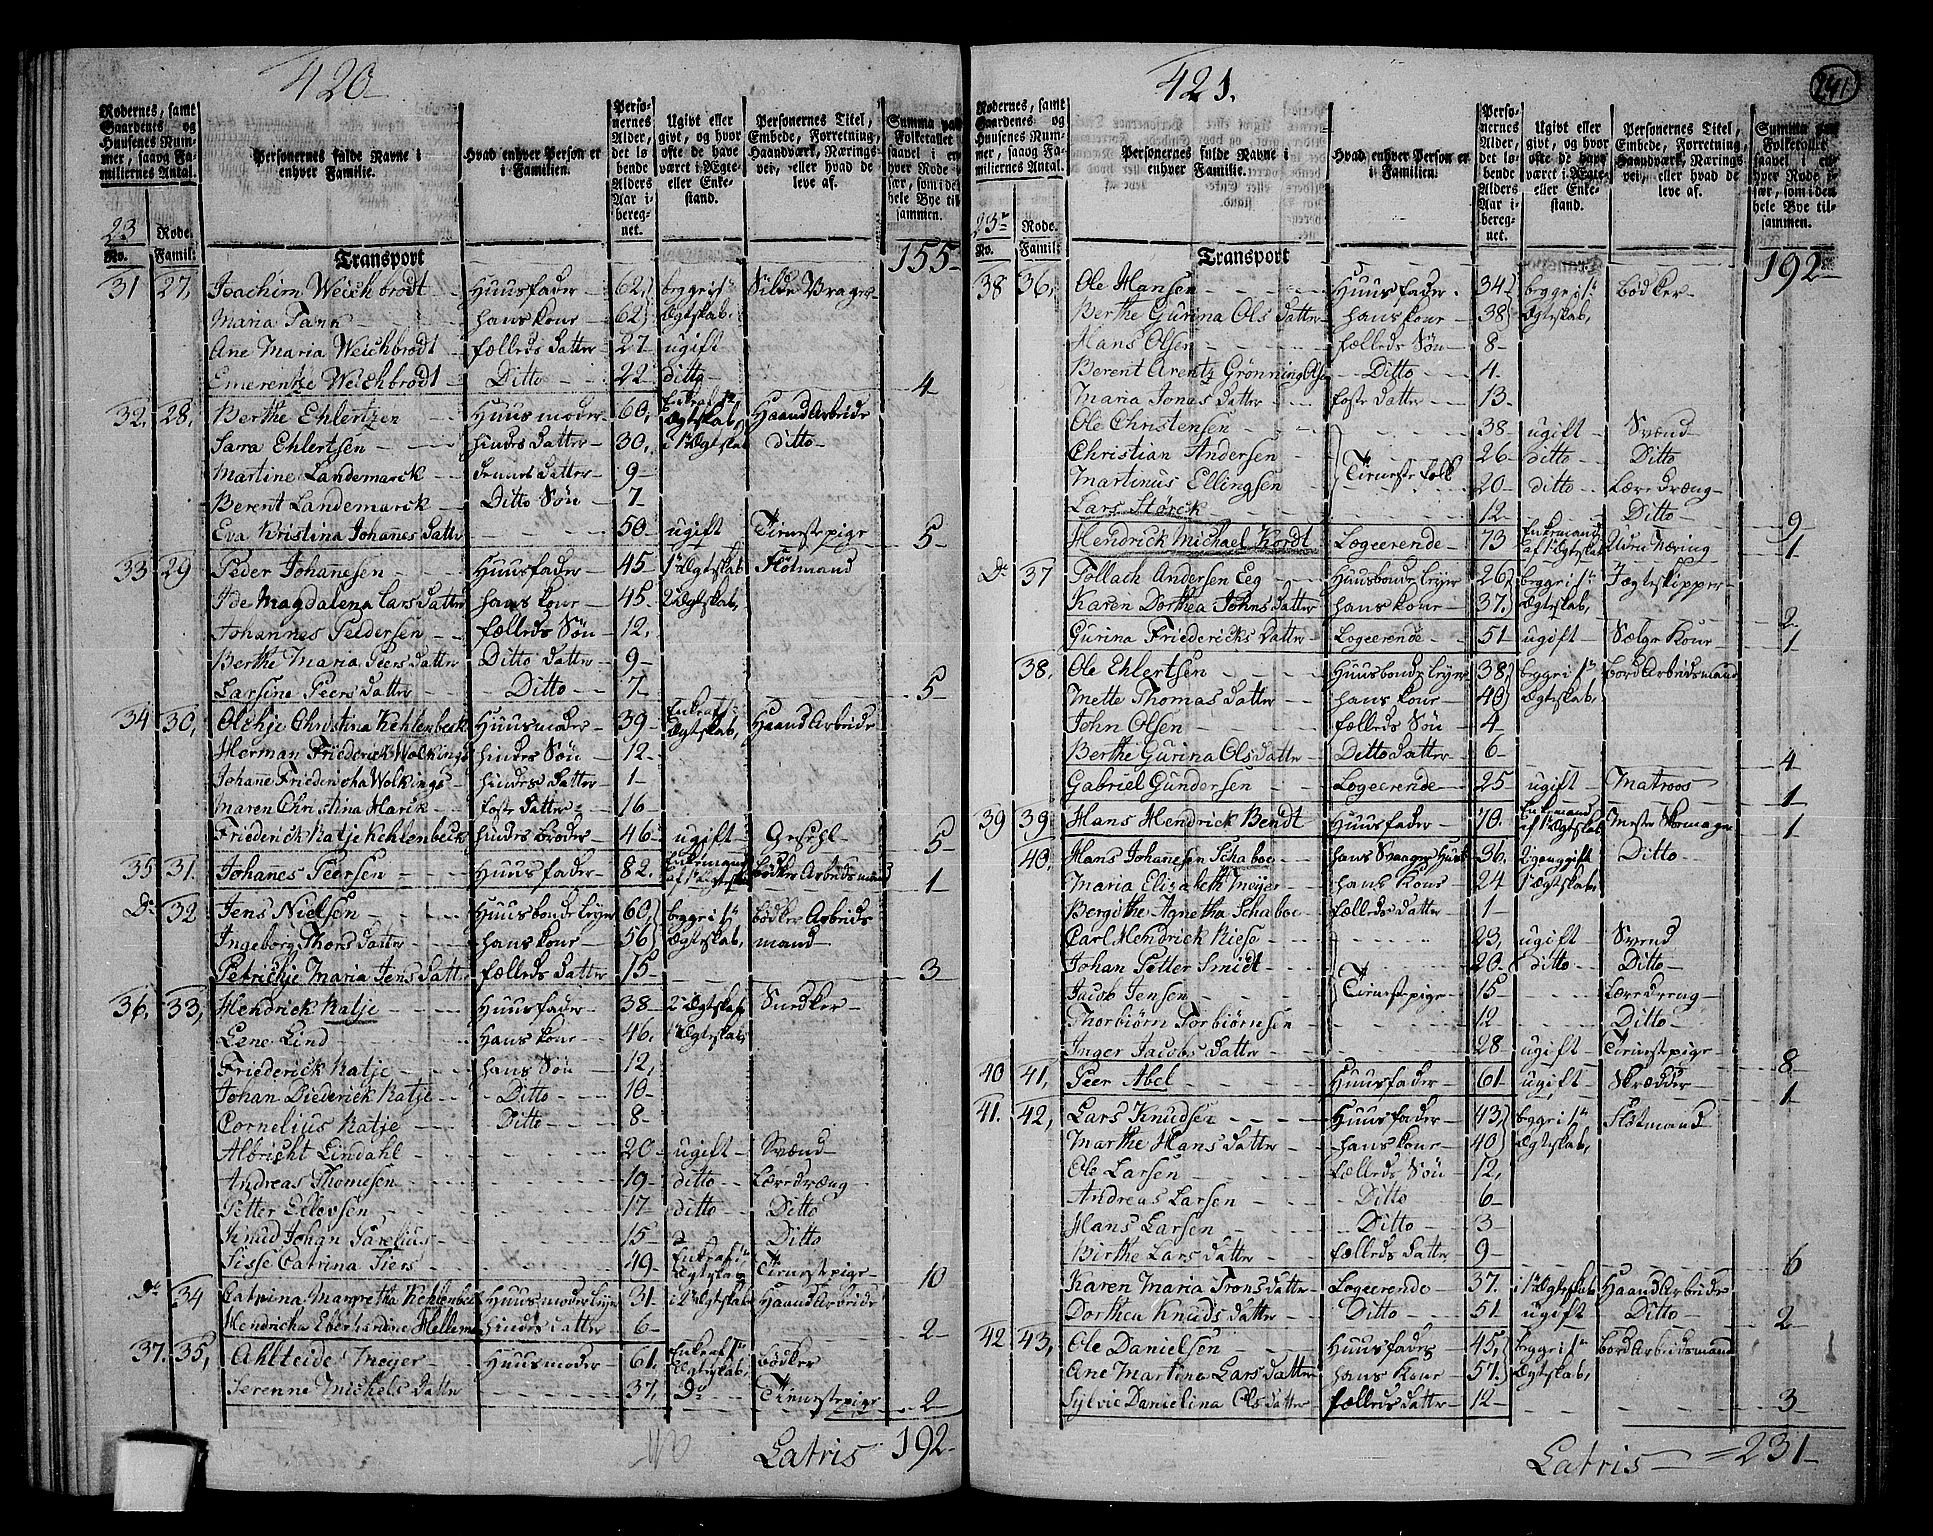 420
Rodernes, samt Gaardenes og Huusenes Nummer, saavg Familiernes Antal.
Personernes fulde Navne i enhver Familie.
Hvad enhver Person er i Familien.
Personernes Alder, det løbende Alders Aar iberegnet.
Ugivt eller givt, og hvor ofte de have været i Ægte- eller Enkestand.
Personernes Titel, Embede, Forretning, Haandværk, Næringsvei, eller hvad de leve af.
Summa paa Folketallet saavel i enhver Rode især, som i den hele Bye tilsammen.
23 Rode.
No. Famil:
Transport 155
31 27, Joachim Weichbrodt Huusfader 62, begge i 1ste Silde Vrager
Maria Tank hans kone 62 Ægteskab,
Ane Maria Weichbrodt fælleds datter 27 ugift
Emerentze Weichbrodt Ditto 22 ditto 4
32. 28. Berthe Ehlertzen Huusmoder 60, Enke af 1te Ægteskab, Haand Arbeide
Sara Ehlertsen hindes datter 30, i 1t Ægtskab ditto
Martine Landemarck dennes datter 9
Berent Landemarck Ditto Søn 7
Eva Kristina Johannes datter 50 ugift Tienestepige 5
33 29 Peder Johanesen Huusfader 45 1t Ægteskab Flötmand
Ide Magdalena Lars datter hans kone 45. 2 Ægteskab,
Johannes Pedersen fælleds Søn 12,
Berthe Maria Peers datter Ditto datter 9
Larsine Peers datter Ditto 7 5
34 30, Olehje Christina Kehlenbeck Huusmoder 39 Enke af 1 Ægteskab, Haand Arbeide
Herman Friederick Wolkings hindes Søn 12
Johane Friedericha Wolkings hindes datter 1
Maren Christina Marck foste datter 16
Friederick Katje Kehlenbeck hindes broder 46 ugift Gesehl 5
35 31. Johanes Peersen Huusfader 82. Enkemand af 1t Ægteskab bödker Arbeidsmand 1
Do 32 Jens Nielsen Huusbonde leyer 60, begge i 1te bödker Arbeids
Ingeborg Thors datter hans kone 56 Ægteskab, mand
Petrichje Maria Jens datter fælleds datter 15 3
36. 33, Hendrick Katje Huusfader 38 2t Ægteskab Snedker
Lene Lind Hans kone 46. 1t Ægteskab
Friederick Katje hans Søn 12,
Johan Diederick Katje Ditto 10
Cornelius Katje Ditto 8
Albricht Lindahl 20 ugift Svænd
Andreas Thomesen 19 ditto Læredræng
Petter Ellevsen 17 ditto Ditto
Knud Johan Sarelius 15 Ditto
Sisse Catrina Siers 49 Enke af 1te Ægteskab Tienestepige 10
Do 34 Catrina Margretha Kehlenbeck Huusmoder leyer 31. i 1t Ægteskab Haand Arbeide
Hendricha Eberhardine Hellem hindes datter 6 2
37. 35, Ahlteide Meyer Huusmoder 61. Enke af 1te Ægteskab, bödker
Serenne Michels datter 37, Do Tienestepige 2
Latris 192

421.
241
Rodernes, samt Gaardenes og Huusenes Nummer, saavg Familiernes Antal.
Personernes fulde Navne i enhver Familie.
Hvad enhver Person er i Familien.
Personernes Alder, det løbende Alders Aar iberegnet.
Ugivt eller givt, og hvor ofte de have været i Ægte- eller Enkestand.
Personernes Titel, Embede, Forretning, Haandværk, Næringsvei, eller hvad de leve af.
Summa paa Folketallet saavel i enhver Rode især, som i den hele Bye tilsammen.
23 Rode.
No. Famil:
Transport 192
38 36, Ole Hansen Huusfader 34 begge i 1te bödker
Berthe Gurina Ols datter hans kone 38 Ægteskab,
Hans Olsen fælleds Søn 8
Berent Arentz Grönning Olsen Ditto 4
Maria Jonas datter foste datter 13
Ole Christensen 38 ugift Svænd
Christian Andersen Tieneste folk 26 ditto Ditto
Martinus Ellingsen 20 ditto Læredræng
Lars Störck 12 Ditto 9
Hendrick Michael Kordt Logeerende 73 Enkemand af 1t Ægteskab Uden Næring 1
Do 37 Tollach Andersen Eeg Huusbonde leyer 26 begge i 1te Jægteskipper
Karen Dorthea Johns datter hans kone 37. Ægteskab, 2
Gurina Friedericks datter Logeerende 51 ugift Sælge Kone 1
38. Ole Ehlertsen Huusbonde leyer 38, begge i 1te bord Arbeidsmand
Mette Thomas datter hans kone 40 Ægteskab,
John Olsen fælleds Søn 4
Berthe Gurina Ols datter Ditto datter 6 4
Gabriel Gundersen Logeerende 25 ugift Matroos 1
39 39 Hans Hendrick Bendt Huusfader 70. Enkemand af 1t Ægteskab Mester Skomager 1
40. Hans Johannesen Schaboe hans Svaager Huus 36. 2 genggift Ditto
Maria Elizabeth Meyer hans Kone 24 1t Ægteskab
Bergithe Agnetha Schaboe fælleds datter 1
Carl Hendrick Riese 23, ugift Svend
Johan Petter Smidt 20. ditto Ditto
Jacob Jensen Tienestepige 15 Læredreng
Thorbiörn Torbiörnsen 12 Ditto
Inger Jacobs datter 28 ugift Tienestepige 8
40 41, Peer Abel Huusfader 61 ugift Skrædder 1
41. 42, Lars Knudsen Huusfader 43, begge i 1te Flötmand
Marthe Hans datter hans kone 40 Ægteskab,
Ole Larsen fælleds Søn 12,
Andreas Larsen Ditto 6
Hans Larsen Ditto 3
Birthe Lars datter fælleds datter 9 6
Karen Maria Trons datter Logeerende 37. i 1t Ægteskab Haand Arbeide
Dorthea Knuds datter Ditto 51 ugift Ditto 2
42 43, Ole Danielsen Huusfader 45, begge i 1te bord Arbeidsmand
Ane Martina Lars datter hans Kone 57. Ægteskab,
Sylvie Danielina Ols datter fælleds datter 12 3
Latris 231